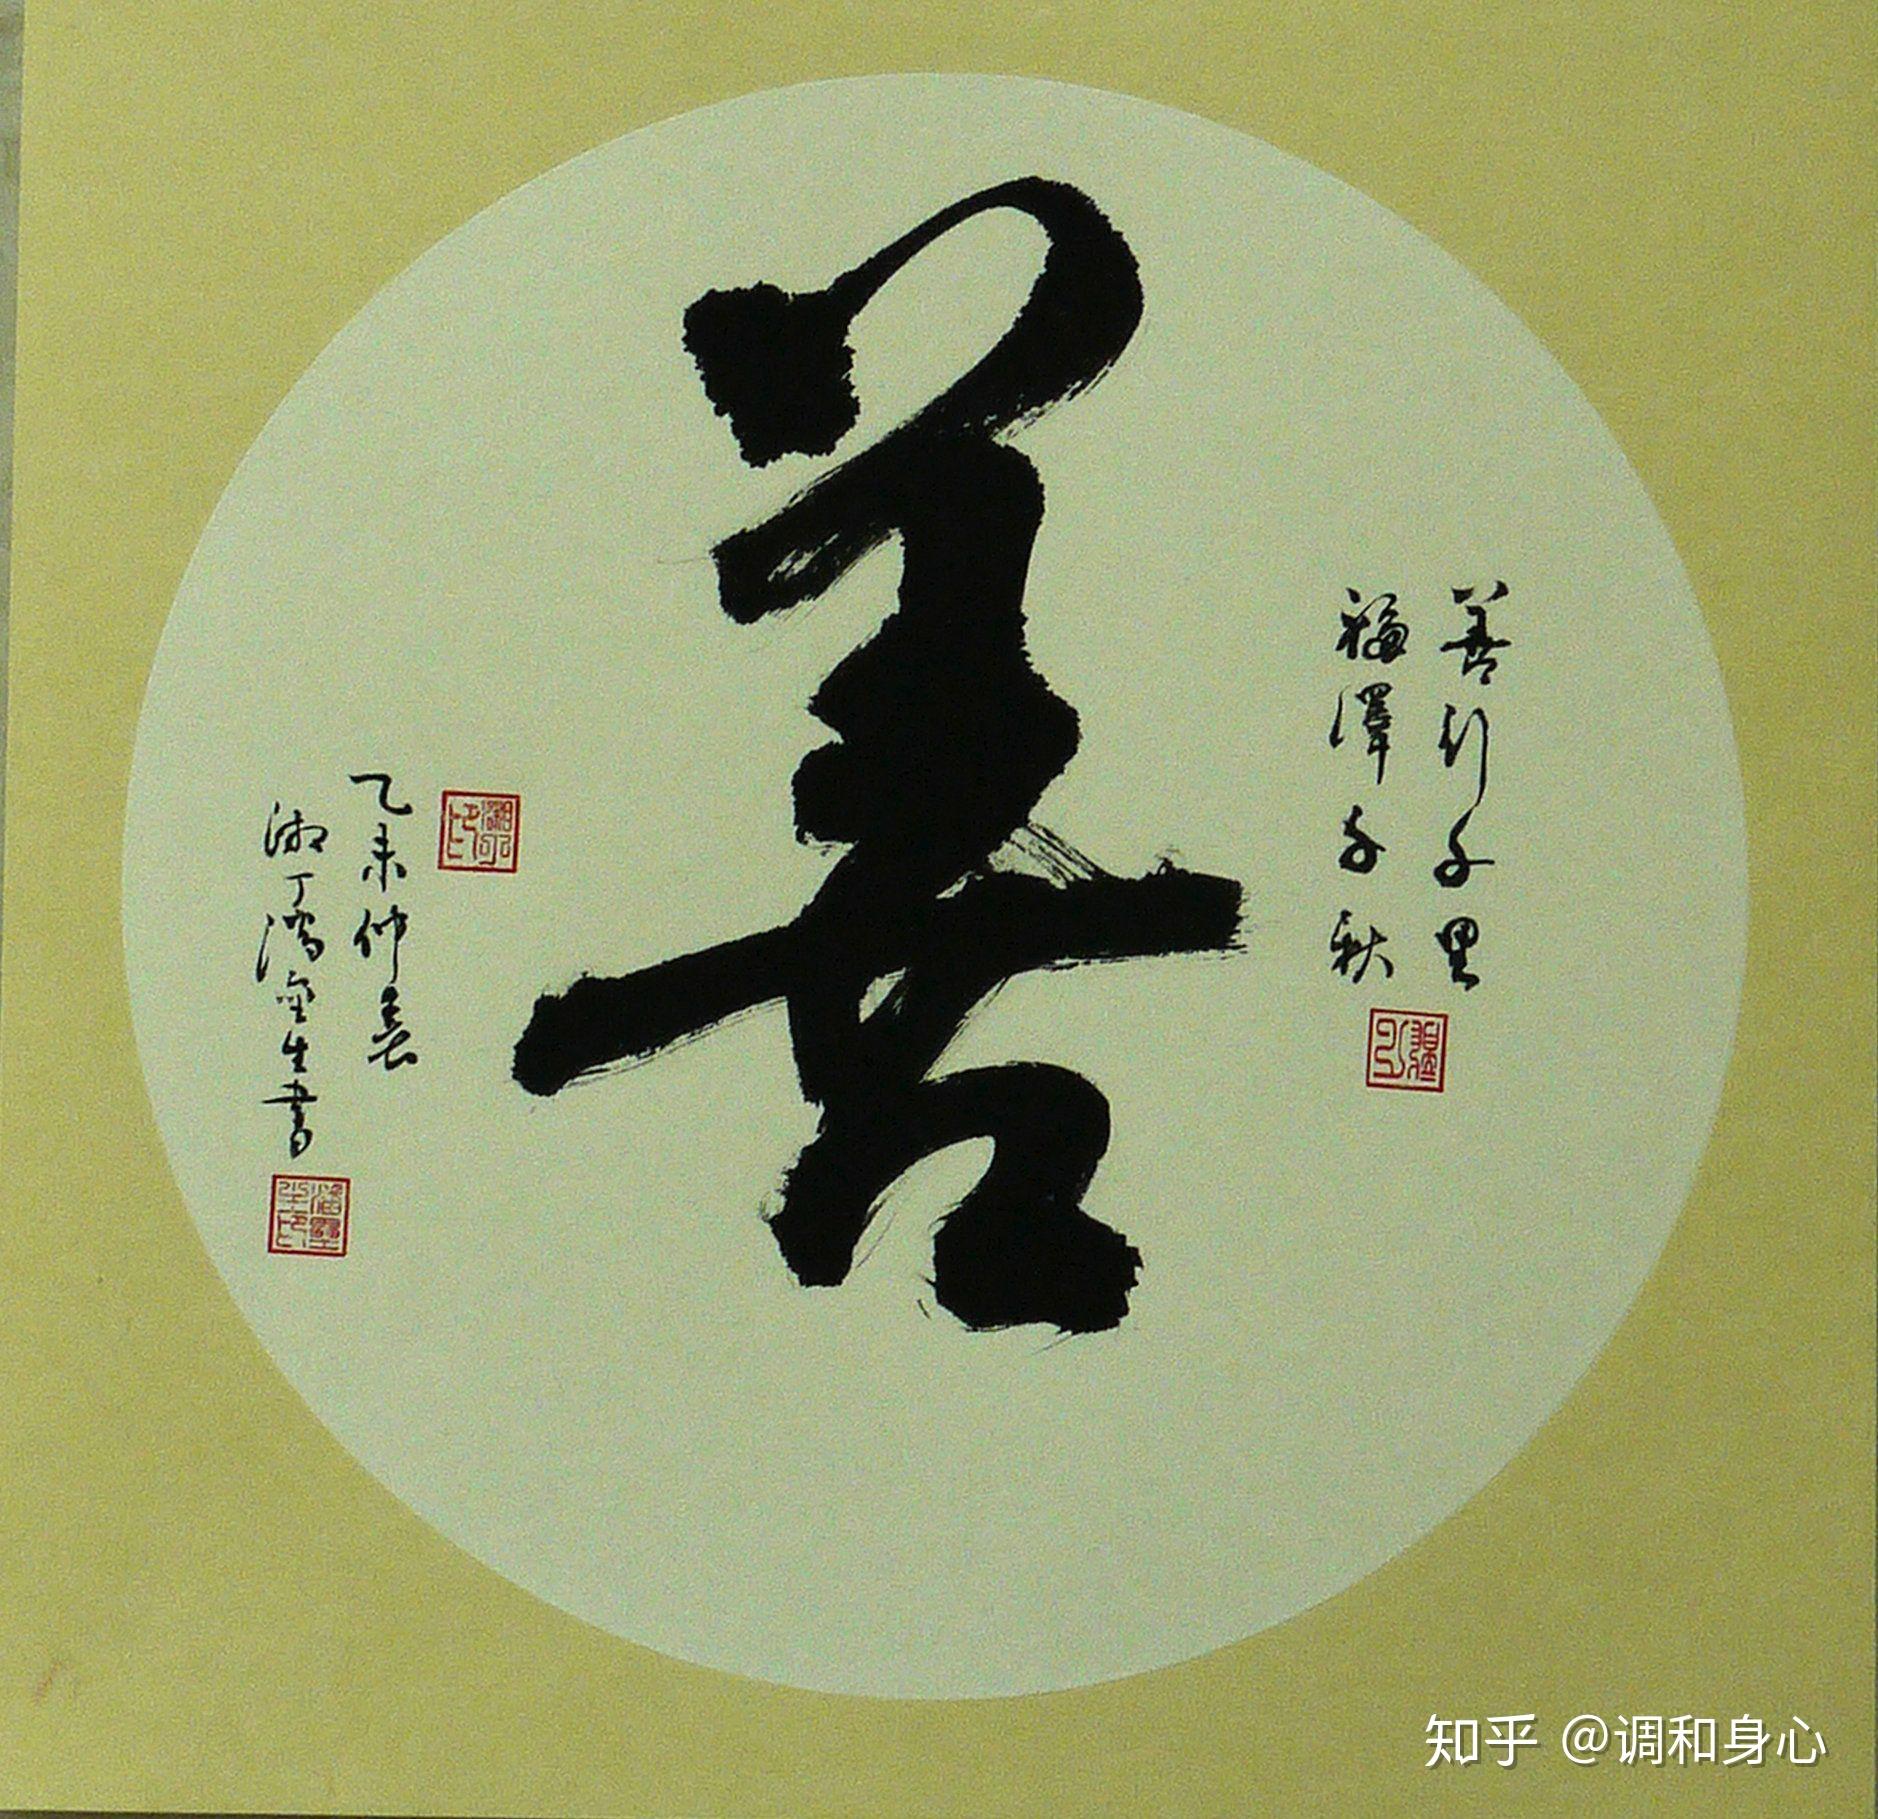 善
善行千里
福澤千秋
乙未仲春
湘丁鴻
生書
知乎 @调和身心